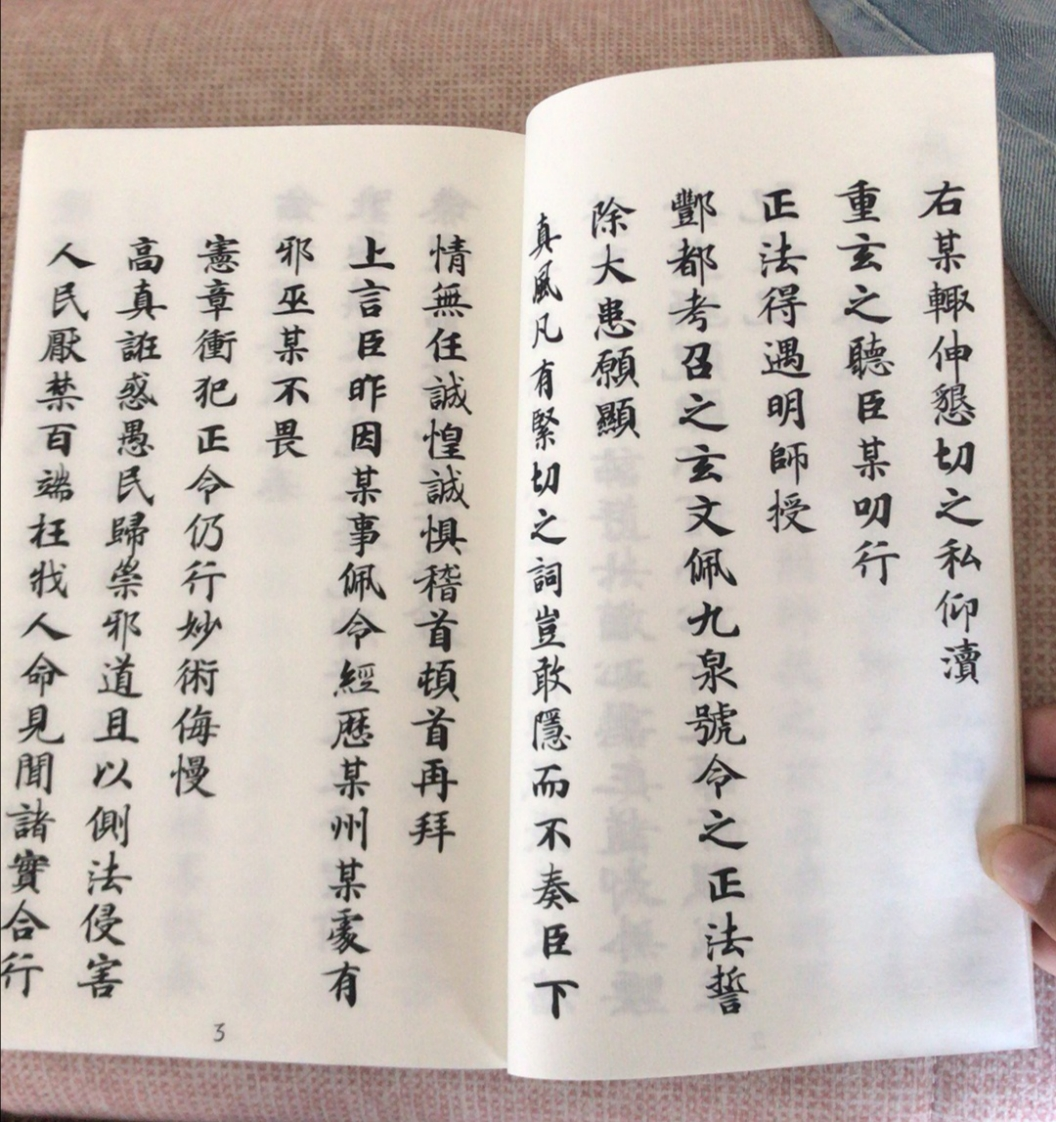 右某輙伸懇切之私仰瀆
重玄之聽臣某叨行
正法得遇明師授
酆都考召之玄文佩九泉號令之正法誓
除大患願顯
真風凡有緊切之詞豈敢隱而不奏臣下
情無任誠惶誠惧稽首頓首再拜
上言臣昨因某事佩令經歷某州某處有
邪巫某不畏
憲章衝犯正令仍行妙術侮慢
高真誑惑愚民歸崇邪道且以側法侵害
人民厭禁百端枉戕人命見聞諸實合行
3
2